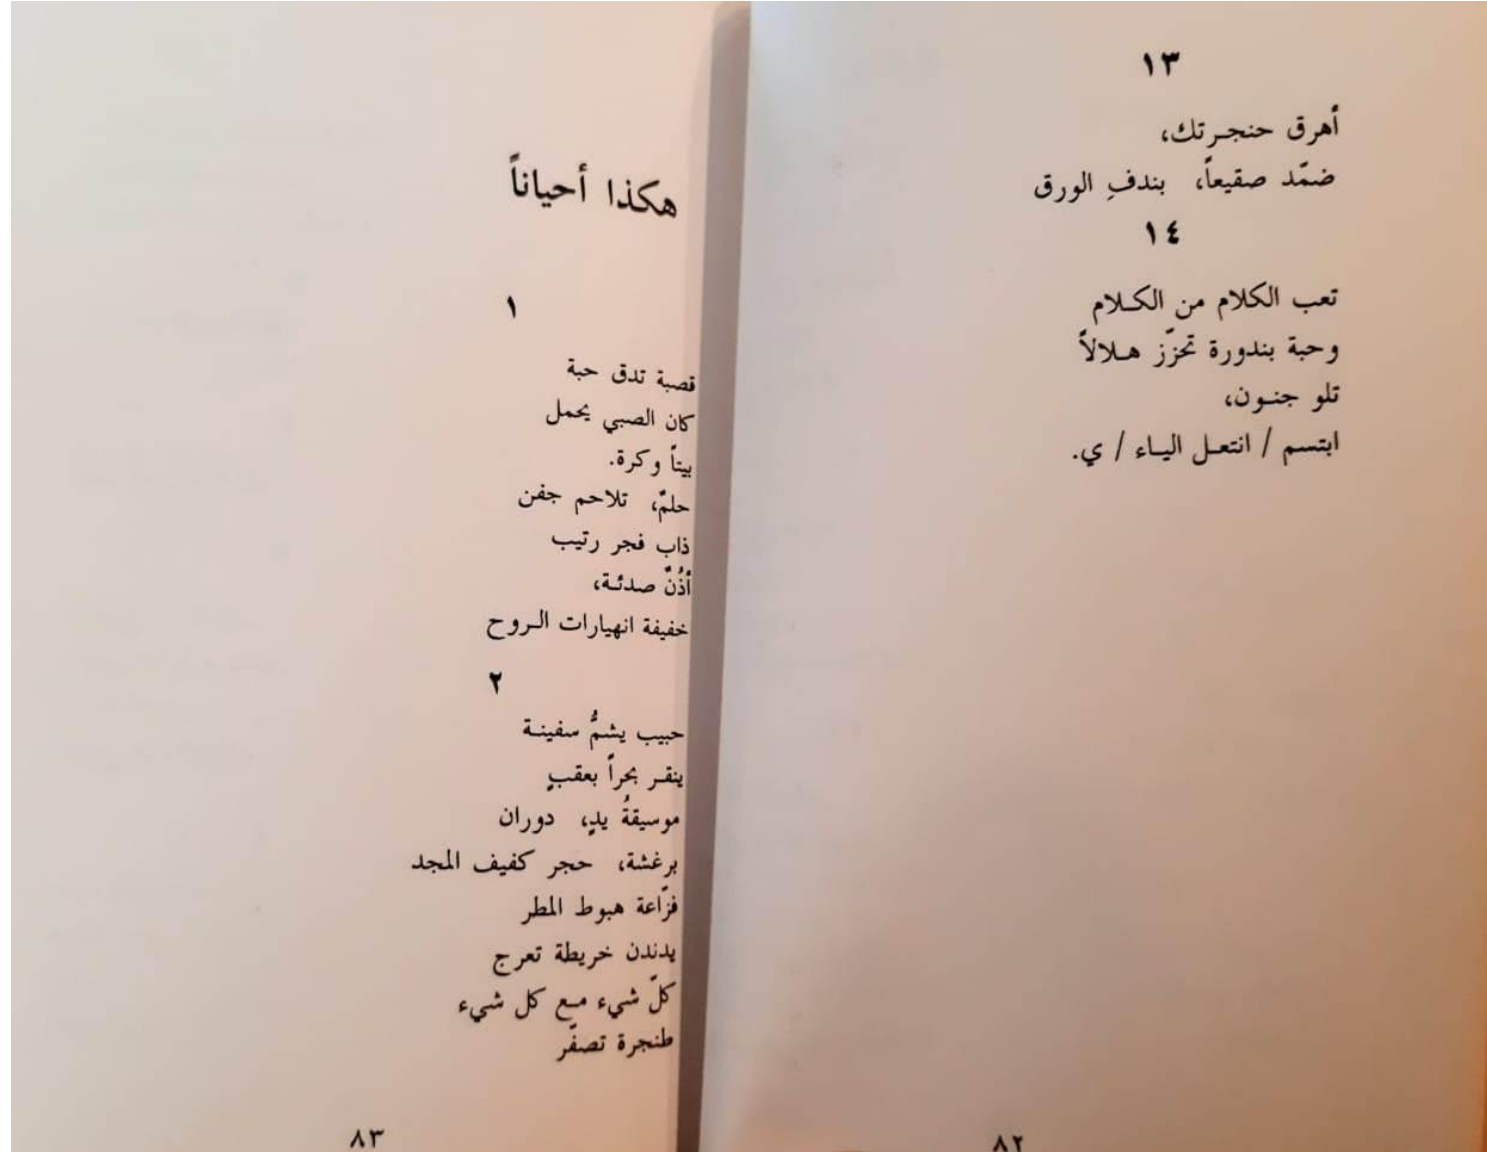 ١٣
أهرق حنجرتك،
ضمّد صقيعاً، بندفِ الورق
١٤
تعب الكلام من الكلام
وحبة بندورة تحزّز هلالاً
تلو جنون،
ابتسم / انتعل الياء / ي.
٨٢
هكذا أحياناً
١
قصبة تدق حبة
كان الصبي يحمل
بيتاً وكرة.
حلمٌ، تلاحم جفن
ذاب فجر رتيب
أذُنٌ صدئة،
خفيفة انهيارات الروح
٢
حبيب يشمُّ سفينة
ينقر بحراً بعقبٍ
موسيقةُ يدٍ، دوران
برغشة، حجر كفيف المجد
فزّاعة هبوط المطر
يدندن خريطة تعرج
كلّ شيء مع كل شيء
طنجرة تصفّر
٨٣